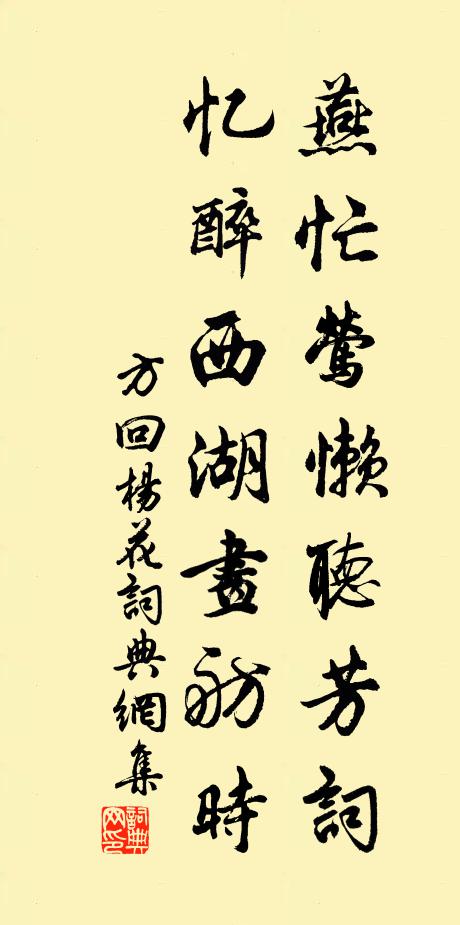 燕忙莺懒聽芳詞
忆醉西湖畫舫時
方回楊花詞典網集
詞典网印